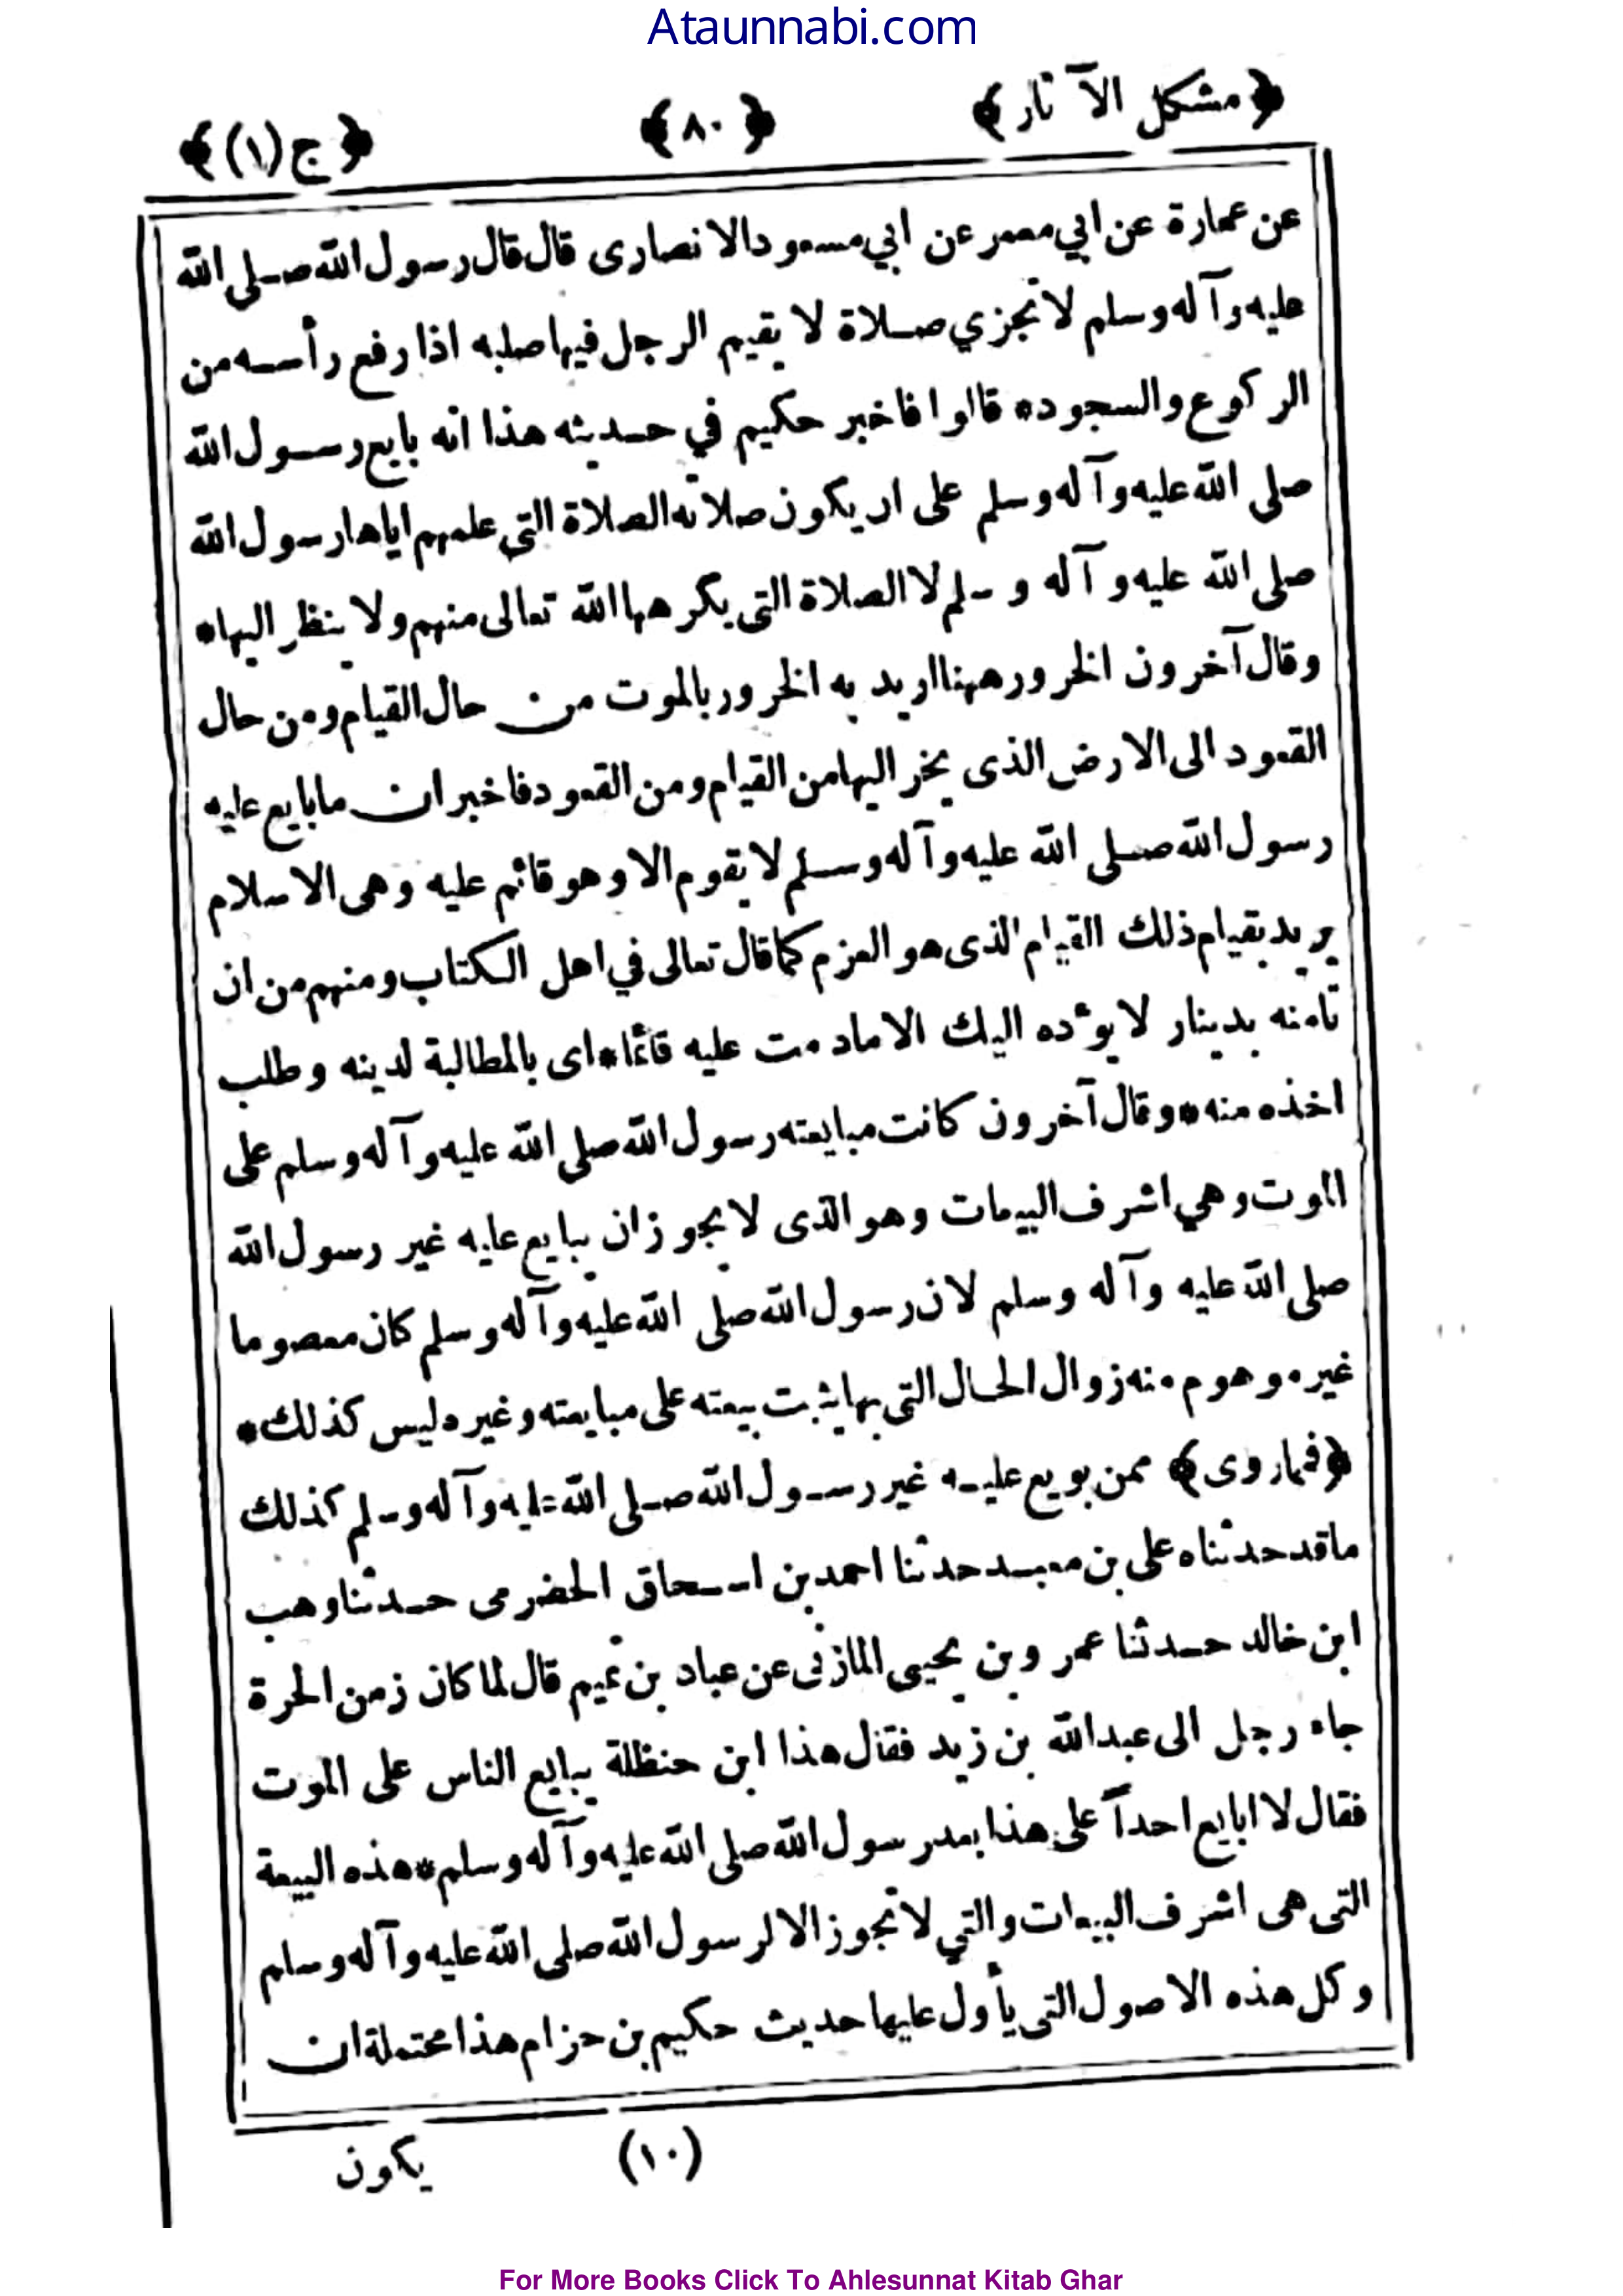 Ataunnabi.com
﴿مشكل الآثار﴾ ﴿٨٠﴾ ﴿ج(١)﴾
عن عمارة عن ابي معمر عن ابي مسعود الانصارى قال قال رسول الله صلى الله
عليه وآله وسلم لا تجزي صلاة لا يقيم الرجل فيها صلبه اذا رفع رأسه من
الركوع والسجود* قالوا فاخبر حكيم في حديثه هذا انه بايع رسول الله
صلى الله عليه وآله وسلم على ان يكون صلاته الصلاة التى علمهم اياها رسول الله
صلى الله عليه وآله وسلم لا الصلاة التى يكرهها الله تعالى منهم ولا ينظر اليها*
وقال آخرون الخرور ههنا اريد به الخرور بالموت من حال القيام ومن حال
القعود الى الارض الذى يخر اليها من القيام ومن القعود فاخبر ان ما بايع عليه
رسول الله صلى الله عليه وآله وسلم لا يقوم الا وهو قائم عليه وهى الاسلام
يريد بقيام ذلك القيام الذى هو العزم كما قال تعالى في اهل الكتاب ومنهم من ان
تامنه بدينار لا يوءده اليك الا ما دمت عليه قائما* اى بالمطالبة لدينه وطلب
اخذه منه* وقال آخرون كانت مبايعته رسول الله صلى الله عليه وآله وسلم على
الموت وهي اشرف البيعات وهو الذى لا يجوز ان يبايع عليه غير رسول الله
صلى الله عليه وآله وسلم لان رسول الله صلى الله عليه وآله وسلم كان معصوما
غير موهوم منه زوال الحال التى بها يثبت بيعته على مبايعته وغيره ليس كذلك*
﴿فما روى﴾ ممن بويع عليه غير رسول الله صلى الله عليه وآله وسلم كذلك
ما قد حدثناه على بن معبد حدثنا احمد بن اسحاق الحضرمى حدثنا وهب
ابن خالد حدثنا عمرو بن يحيى المازنى عن عباد بن تميم قال لما كان زمن الحرة
جاء رجل الى عبد الله بن زيد فقال هذا ابن حنظلة يبايع الناس على الموت
فقال لا ابايع احداً على هذا بعد رسول الله صلى الله عليه وآله وسلم* هذه البيعة
التى هى اشرف البيعات والتي لا تجوز الا لرسول الله صلى الله عليه وآله وسلم
وكل هذه الاصول التى يأول عليها حديث حكيم بن حزام هذا محتملة ان
(١٠) يكون
For More Books Click To Ahlesunnat Kitab Ghar